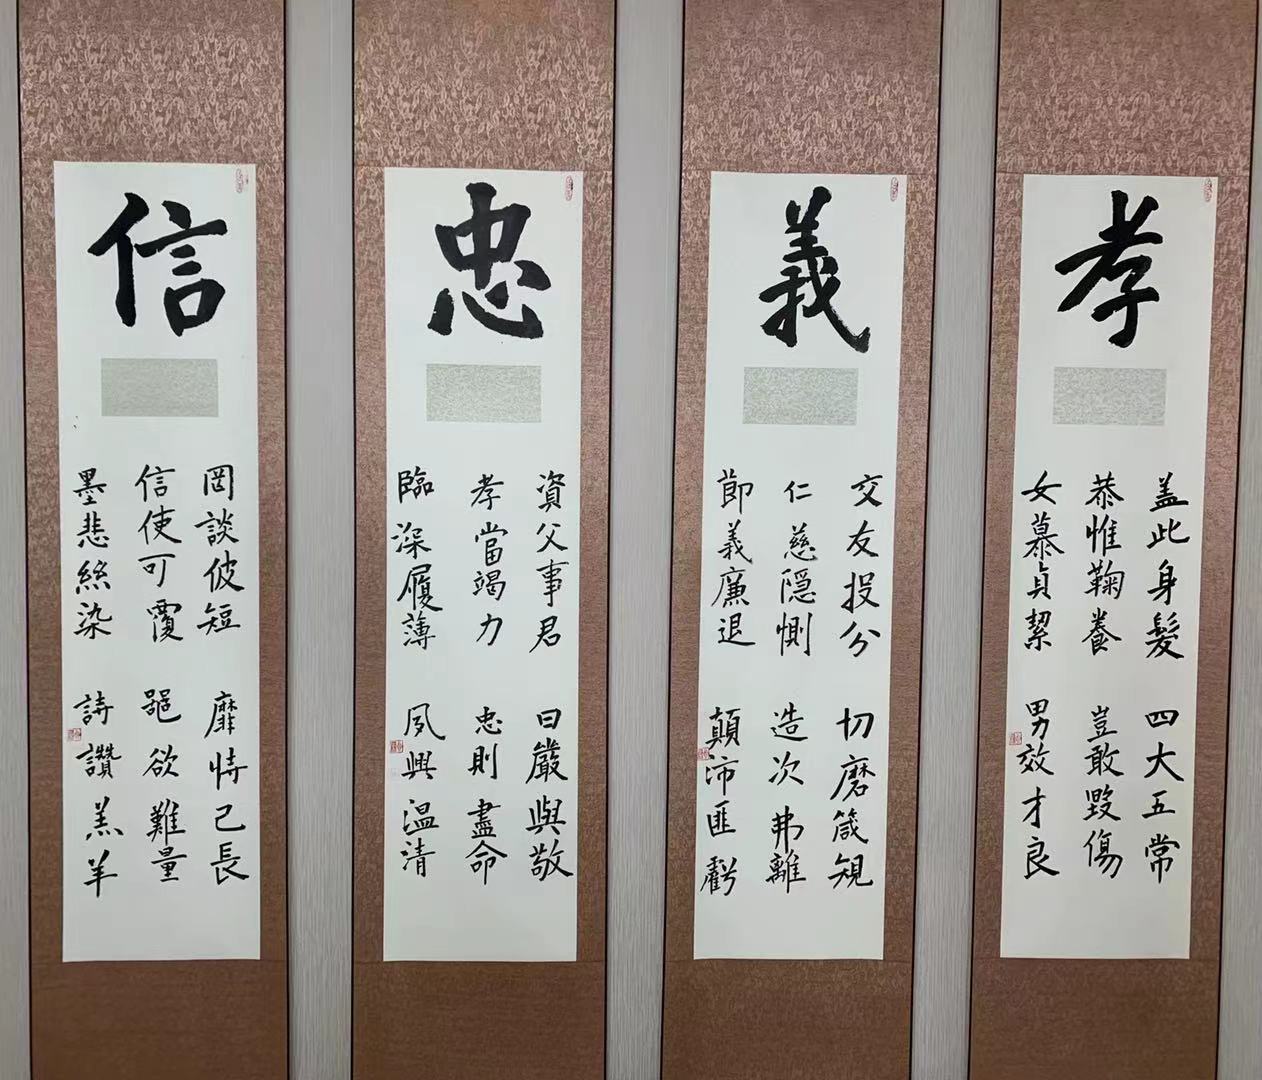 孝
盖此身髮 四大五常
恭惟鞠養 豈敢毀傷
女慕貞絜 男效才良
義
交友投分 切磨箴規
仁慈隱惻 造次弗離
節義廉退 顛沛匪虧
忠
資父事君 曰嚴與敬
孝當竭力 忠則盡命
臨深履薄 夙興温清
信
罔談彼短 靡恃己長
信使可覆 器欲難量
墨悲絲染 詩讚羔羊